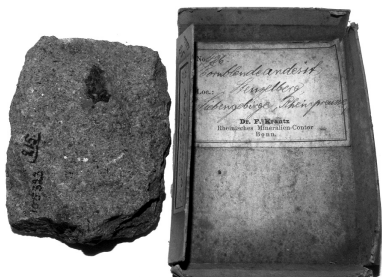 Hornblendeandesit
Loc.: Stenzelberg
Siebengebirge, Rheinpreussen
Dr. F. Krantz
Rheinisches Mineralien-Contor
Bonn.